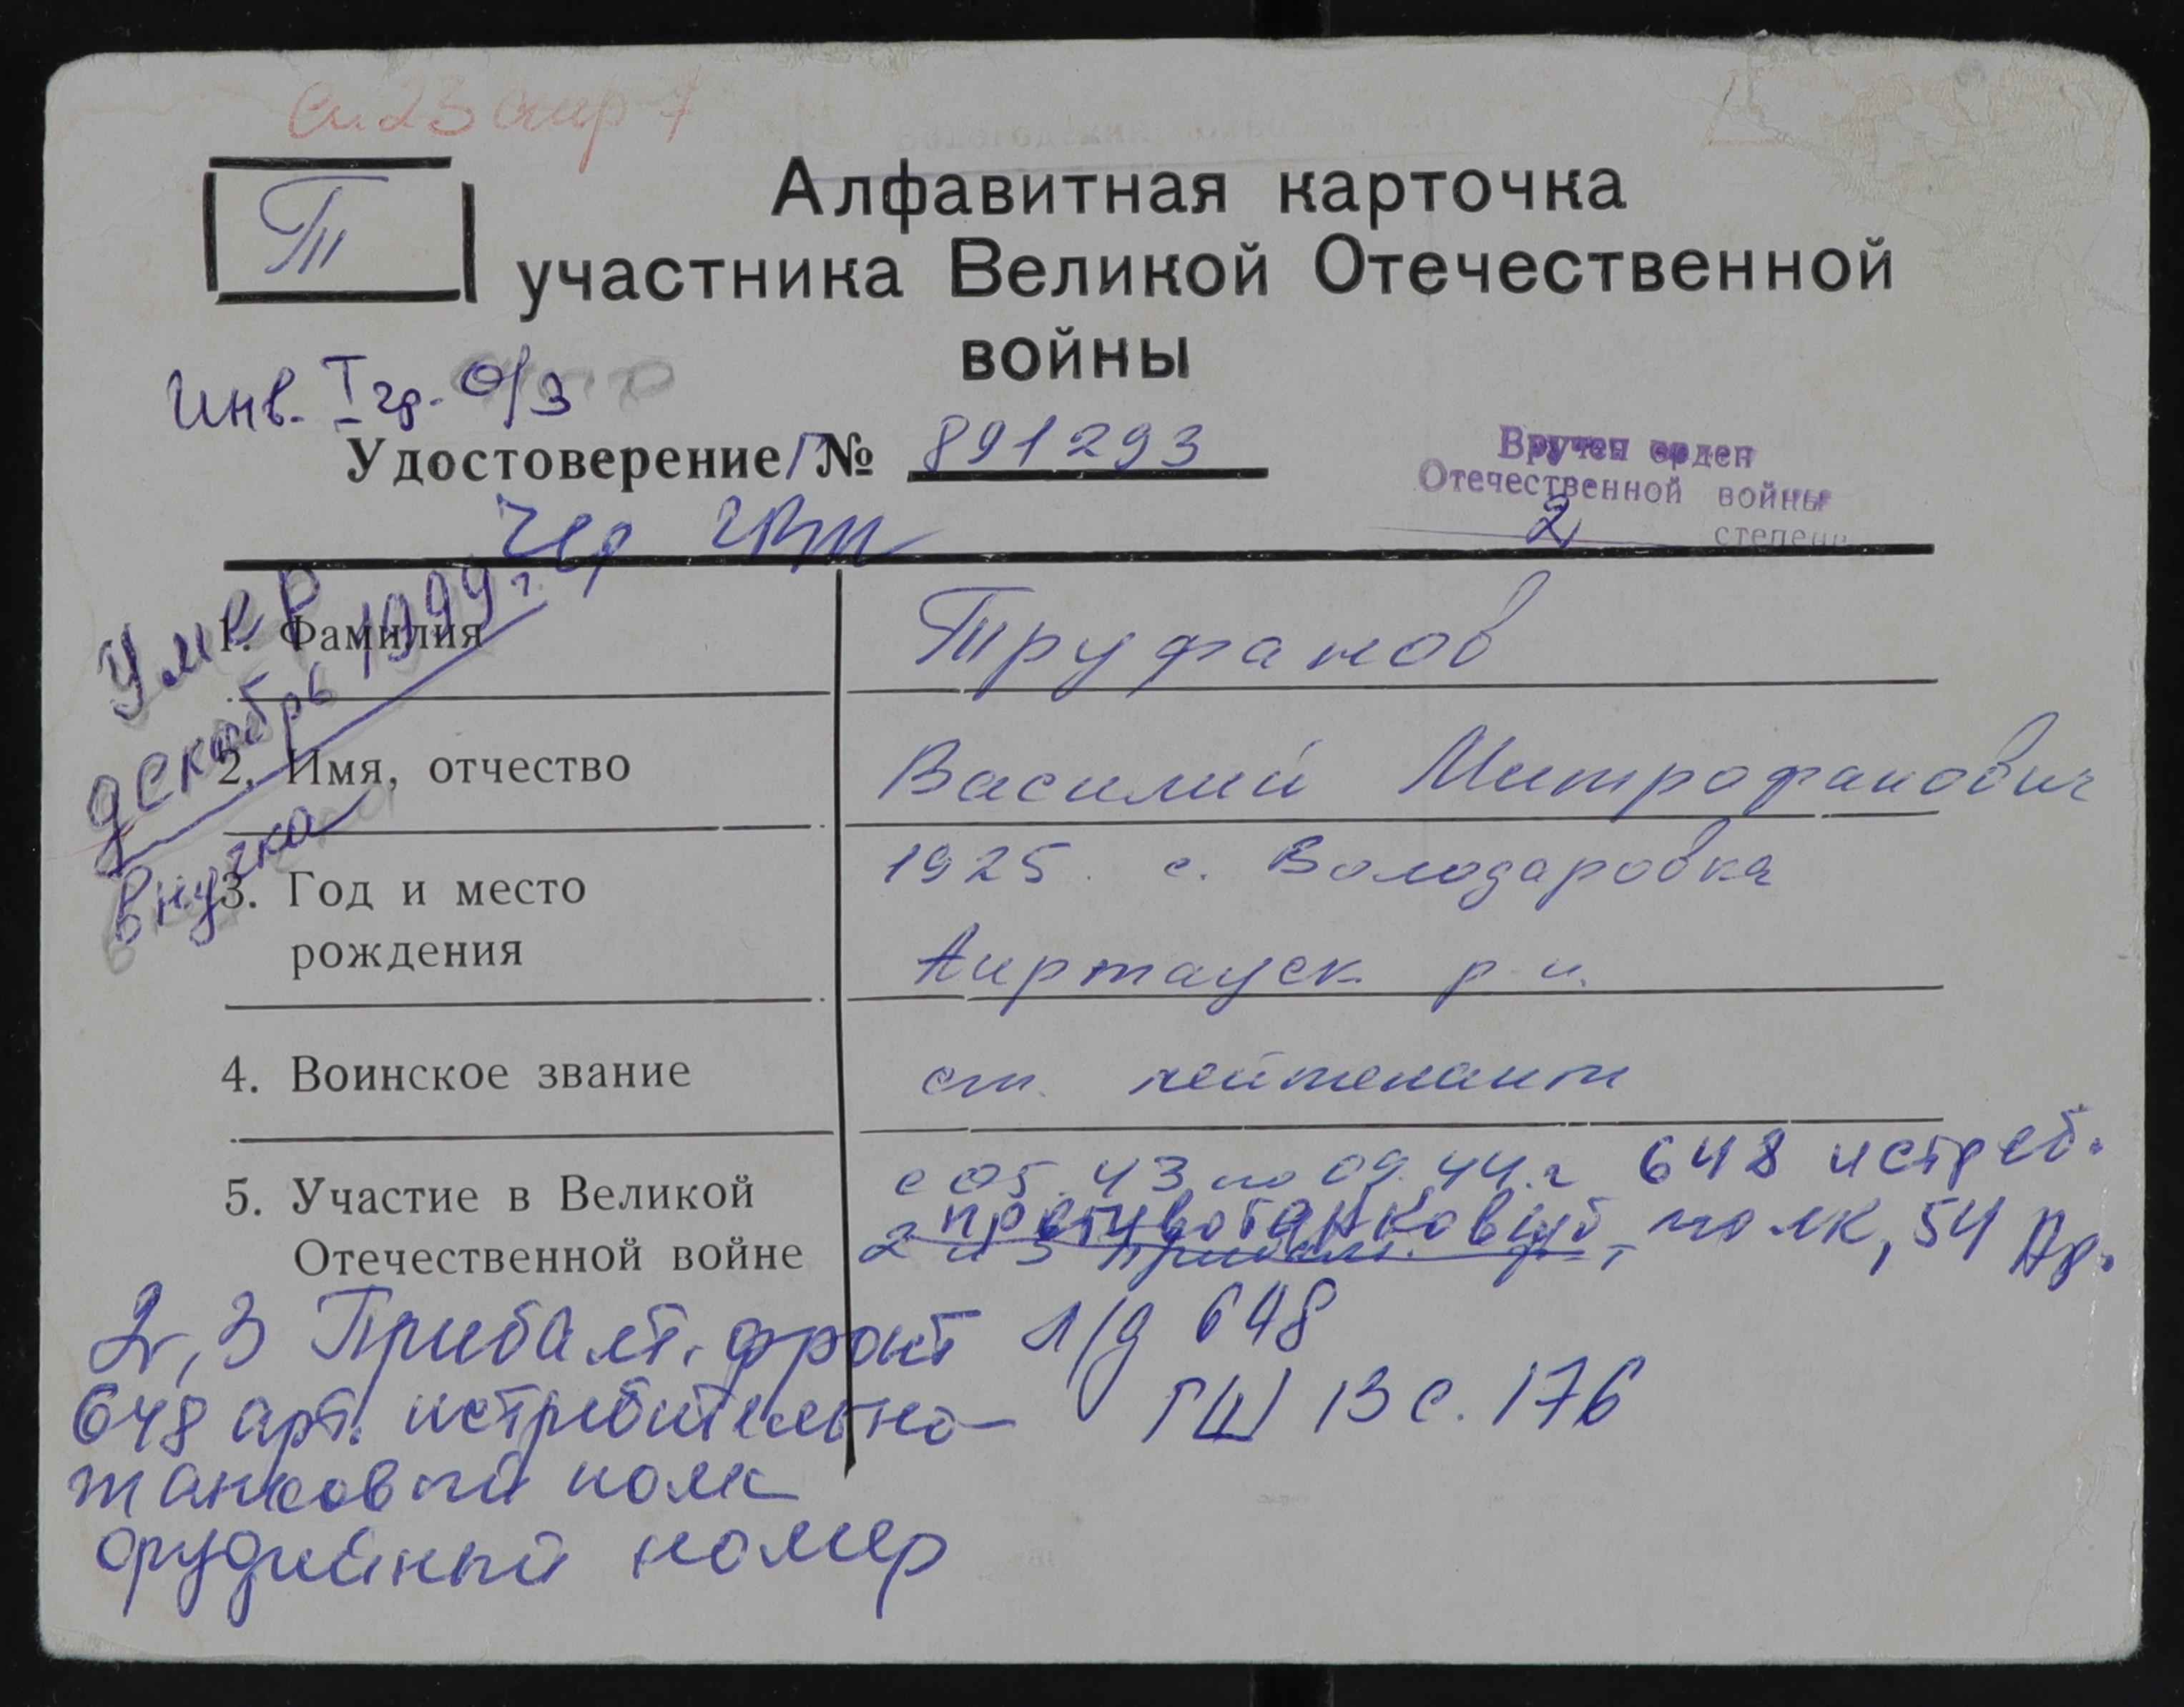 Сп. 23 стр 7
Т
Алфавитная карточка
участника Великой Отечественной
войны
Инв. I гр. О/З
Удостоверение/Г№ 891293
Вручен орден
Отечественной войны
2 степени
Чер
Умер
декабрь 1999 г.
внучка
1. Фамилия Труфанов
2. Имя, отчество Василий Митрофанович
3. Год и место 1925. с. Володаровка
рождения Аиртауск р-н.
4. Воинское звание ст. лейтенант
5. Участие в Великой с 05.43 по 09.44.г 648 истреб.
противотанковый полк, 54 Ар.
Отечественной войне 2 и 3 Прибалт. ф-,
2, 3 Прибалт. фронт л/д 648
648 арт. истребительно- ГШ 13 с. 176
танковый полк
орудийный номер